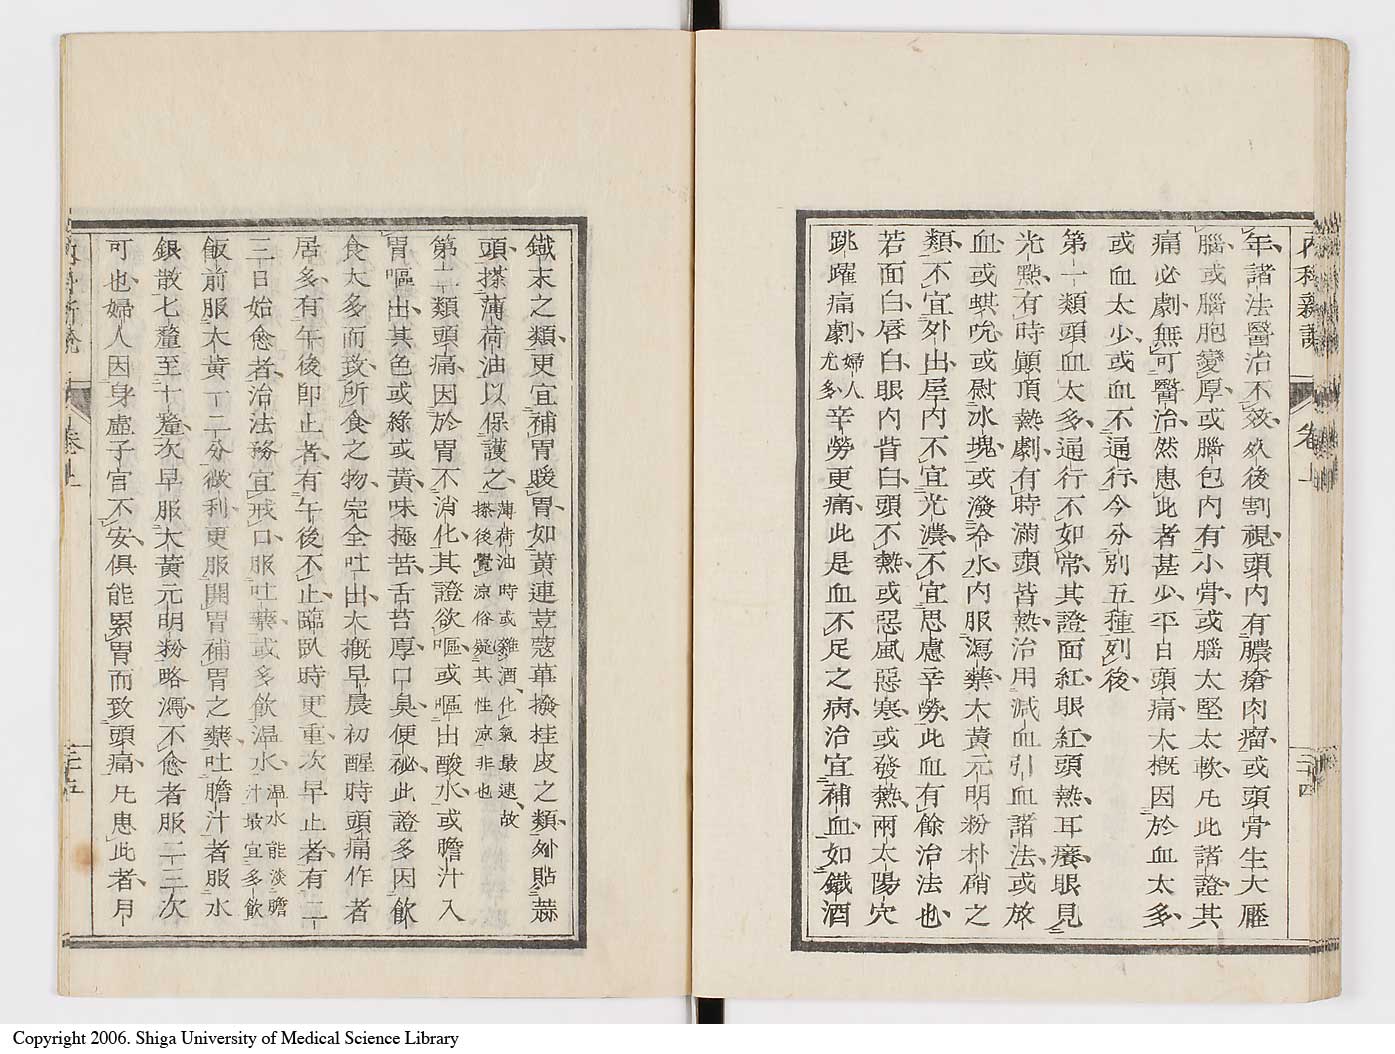 內科新說
卷上
二十四
年諸法醫治不效歿後割視頭內有膿瘡肉瘤或頭骨生大壓
腦或腦胞變厚或腦包內有小骨或腦太堅太軟凡此諸證其
痛必劇無可醫治然患此者甚少平日頭痛大槪因於血太多
或血太少或血不通行今分別五種列後
第一類頭血太多通行不如常其證面紅眼紅頭熱耳癢眼見
光點有時顚頂熱劇有時滿頭皆熱治用減血引血諸法或放
血或蜞吮或慰冰塊或潑冷水內服瀉藥大黃元明粉朴硝之
類不宜外出屋內不宜光濃不宜思慮辛勞此血有餘治法也
若面白唇白眼內眥白頭不熱或惡風惡寒或發熱兩太陽穴
跳躍痛劇婦人尤多辛勞更痛此是血不足之病治宜補血如鐵酒
鐵末之類更宜補胃暖胃如黃連荳蔻蓽撥桂皮之類外貼蒜
頭搽薄荷油以保護之薄荷油時或雞酒化氣最速故
搽後覺涼俗疑其性凉非也
第二類頭痛因於胃不消化其證欲嘔或嘔出酸水或膽汁入
胃嘔出其色或綠或黃味極苦舌苔厚口臭便祕此證多因飲
食太多而致所食之物完全吐出大槪早晨初醒時頭痛作者
居多有午後卽止者有午後不止臨臥時更重次早止者有二
三日始愈者治法務宜戒口服吐藥或多飲温水温水能淡膽
汁最宜多飲
飯前服大黃一二分微利更服開胃補胃之藥吐膽汁者服水
銀散七釐至十釐次早服大黃元明粉略瀉不愈者服二三次
可也婦人因身虛子宮不安俱能累胃而致頭痛凡患此者月
內科新說
卷上
二十五
Copyright 2006. Shiga University of Medical Science Library